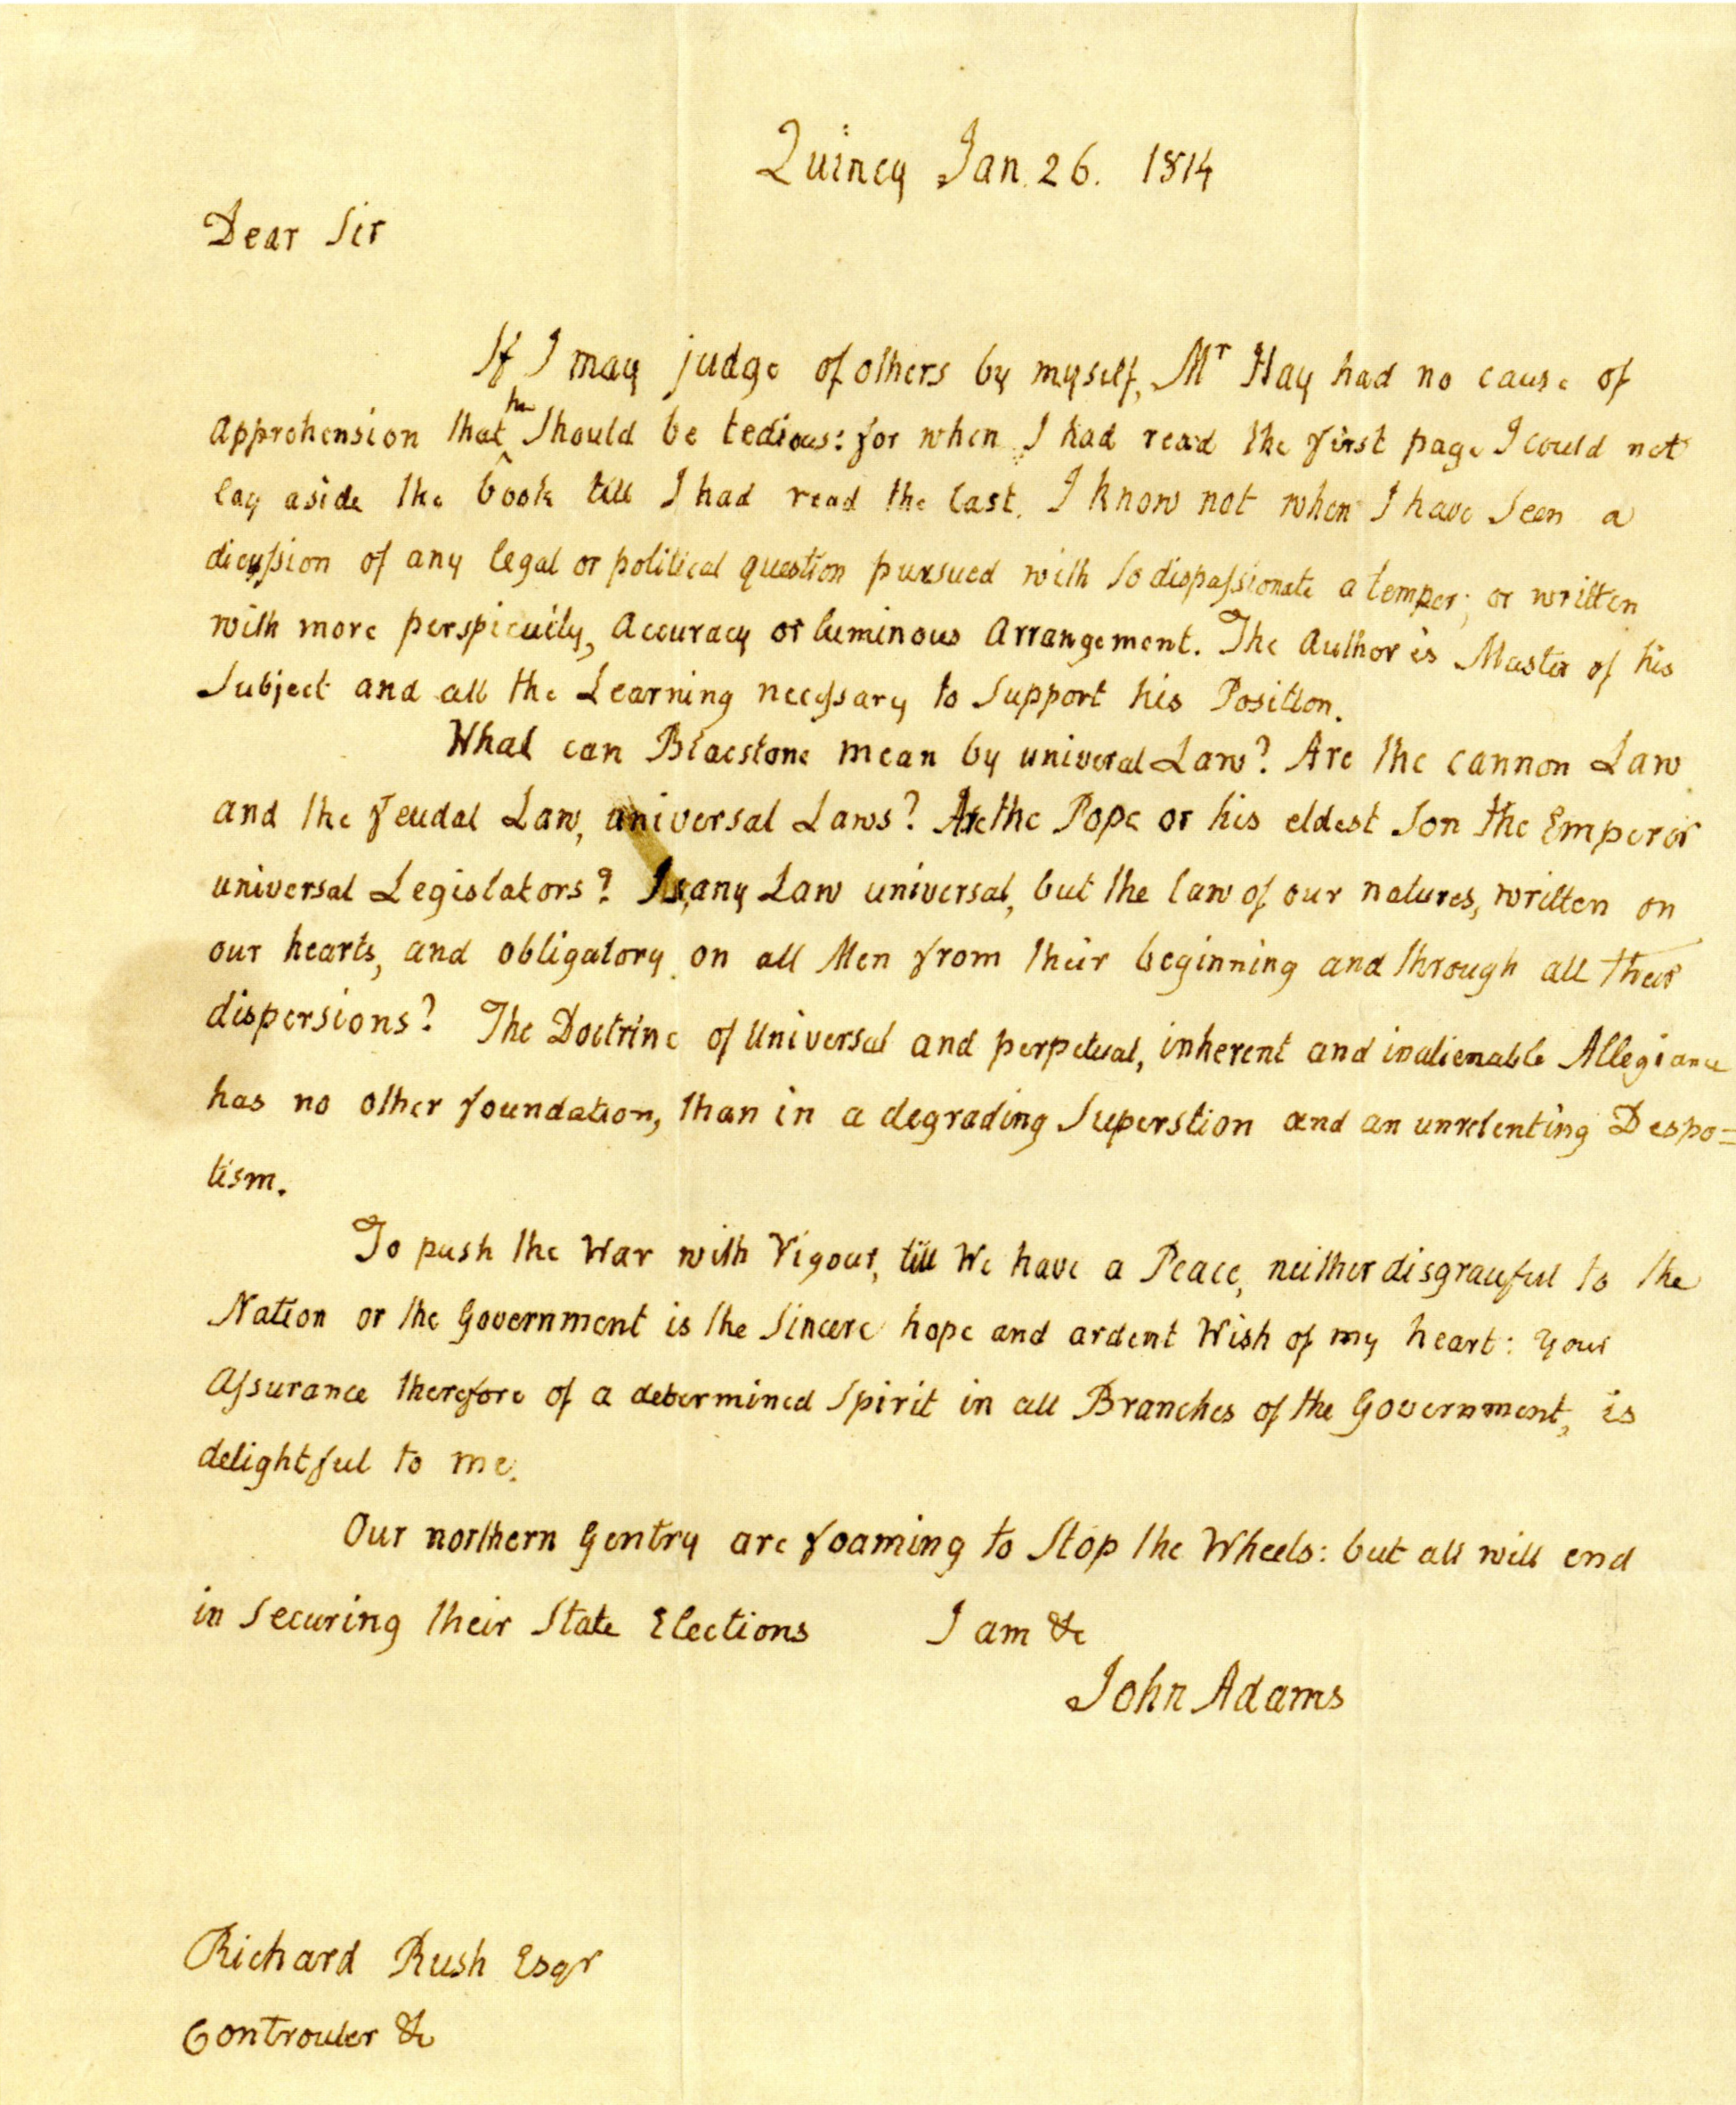 Quincy Jan. 26. 1814
Dear Sir
If I may judge of others by myself, Mr Hay had no cause of
apprehension that he should be tedious: for when I had read the first page I could not
lay aside the book till I had read the last. I know not when I have Seen a
dicussion of any legal or political question pursued with So dispassionate a temper; or written
with more perspicuity, Accuracy or luminous Arrangement. The Author is Master of his
Subject and all the Learning necessary to Support his Position.
What can Blacstone mean by univeral Law? Are the cannon Law
and the feudal Law, universal Laws? Are the Pope or his eldest Son the Emperor
universal Legislators? Is any Law universal, but the law of our natures, written on
our hearts, and obligatory on all Men from their beginning and through all their
dispersions? The Doctrine of Universal and perpetual, inherent and inalienable Allegiance
has no other foundation, than in a degrading Superstion and an unrelenting Despo=
tism.
To push the War with Vigour, till We have a Peace, neither disgraceful to the
Nation or the Government is the Sincere hope and ardent Wish of my heart: your
Assurance therefore of a determined Spirit in all Branches of the Government, is
delightful to me.
Our northern Gentry are foaming to Stop the Wheels: but all will end
in Securing their State Elections I am &c
John Adams
Richard Rush Esqr
Controuler &c